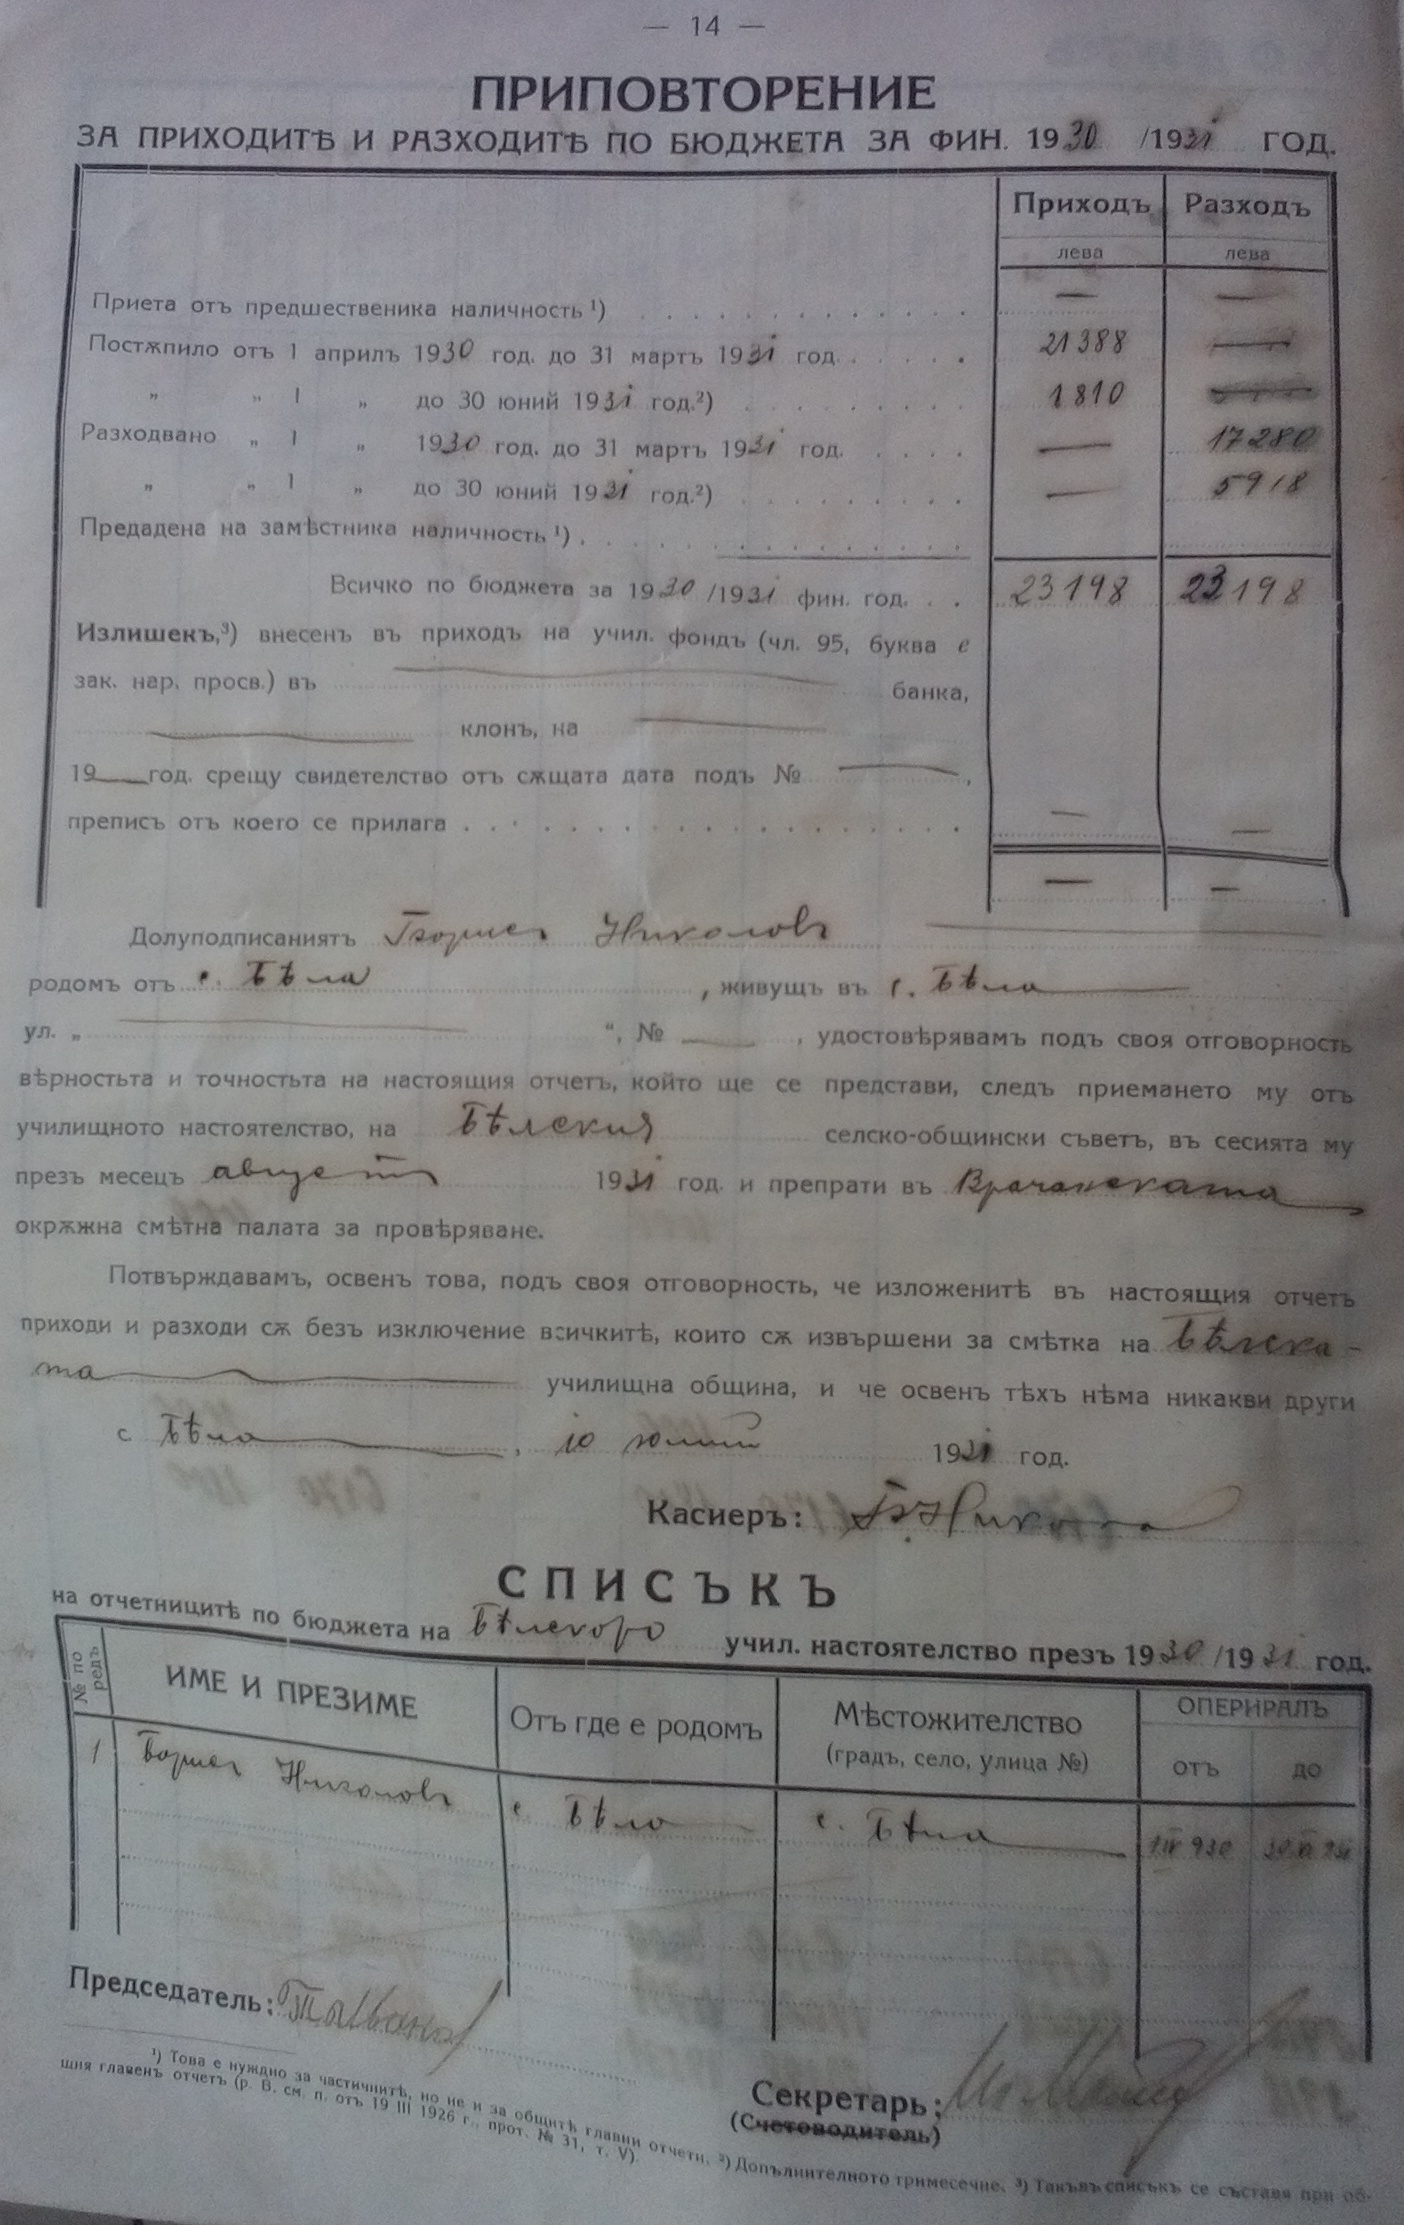 — 14 —
ПРИПОВТОРЕНИЕ
ЗА ПРИХОДИТѢ И РАЗХОДИТѢ ПО БЮДЖЕТА ЗА ФИН. 1930 /1931 ГОД.
Приходъ Разходъ
лева лева
Приета отъ предшественика наличность ¹) . . . . . . . . . . . . — —
Постѫпило отъ 1 априлъ 1930 год. до 31 мартъ 1931 год . . . . . 21388 —
„ „ 1 „ до 30 юний 1931 год.²) . . . . . . . . . 1810 —
Разходвано „ 1 „ 1930 год. до 31 мартъ 1931 год. . . . . — 17280
„ „ 1 „ до 30 юний 1931 год.²) . . . . . . . . . — 5918
Предадена на замѣстника наличность ¹) . . . . . . . . . . . . .
Всичко по бюджета за 1930 /1931 фин. год. . . 23198 23198
Излишекъ,³) внесенъ въ приходъ на учил. фондъ (чл. 95, буква е
зак. нар. просв.) въ — банка,
— клонъ, на —
19— год. срещу свидетелство отъ сѫщата дата подъ № —,
преписъ отъ което се прилага . . . . . . . . . . . . . . . . . — —
— —
Долуподписаниятъ Борисъ Николовъ
родомъ отъ с. Бѣла , живущъ въ с. Бѣла
ул. „ — “, № — , удостовѣрявамъ подъ своя отговорность
вѣрностьта и точностьта на настоящия отчетъ, който ще се представи, следъ приемането му отъ
училищното настоятелство, на Бѣлския селско-общински съветъ, въ сесията му
презъ месецъ августъ 1931 год. и препрати въ Врачанската
окрѫжна смѣтна палата за провѣряване.
Потвърждавамъ, освенъ това, подъ своя отговорность, че изложенитѣ въ настоящия отчетъ
приходи и разходи сѫ безъ изключение всичкитѣ, които сѫ извършени за смѣтка на Бѣлска-
та училищна община, и че освенъ тѣхъ нѣма никакви други
с Бѣла , 10 юлий 1931 год.
Касиеръ: Б. Николовъ
СПИСЪКЪ
на отчетницитѣ по бюджета на Бѣлското учил. настоятелство презъ 1930 /1931 год.
№ по редъ ИМЕ И ПРЕЗИМЕ Отъ где е родомъ Мѣстожителство ОПЕРИРАЛЪ
(градъ, село, улица №) отъ до
1 Борисъ Николовъ с. Бѣла с. Бѣла 1 IV 930
Председатель:
Секретарь:
(Счетоводитель)
¹) Това е нуждно за частичнитѣ, но не и за общитѣ главни отчети. ²) Допълнителното тримесечие. ³) Такъвъ списъкъ се съставя при об-
щия главенъ отчетъ (р. В. см. п. отъ 19 III 1926 г., прот. № 31, т. V).